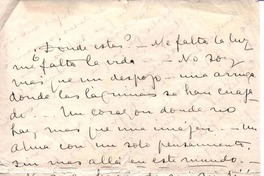 ¿Dónde estás? – Me falta la luz
me falta la vida – – No soy
mas que un despojo – una arruga
donde las lágrimas se han cuaja-
do! – Un corazón donde no
hay mas que una imagen – un
alma con un solo pensamiento,
sin mas allá en este mundo. –